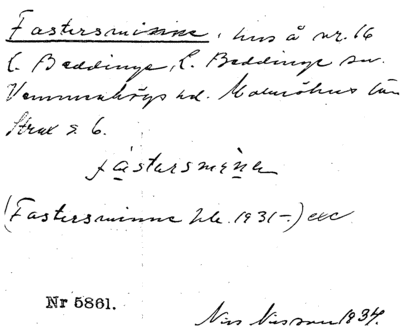 Fastersminne, hus å nr. 16
L. Beddinge, L. Beddinge sn.
Vemmenhögs hd. Malmöhus län
Strax s. 6.
fástersmìna
(Fastersminne 1931-) exc
Nr 5861.
Nils Nilsson 1934.